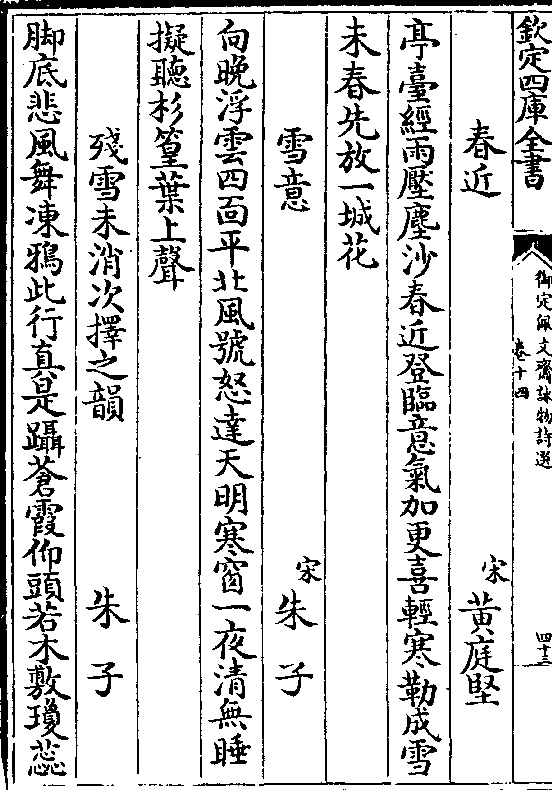 欽定四庫全書
御定佩文齋詠物詩選
卷十四
四十三
春近
宋 黄庭堅
亭臺經雨壓塵沙春近登臨意氣加更喜輕寒勒成雪
未春先放一城花
雪意
宋 朱子
向晚浮雲四面平北風號怒達天明寒窗一夜清無睡
擬聽杉篁葉上聲
殘雪未消次擇之韻
朱子
脚底悲風舞凍鴉此行真是躡蒼霞仰頭若木敷瓊蕊